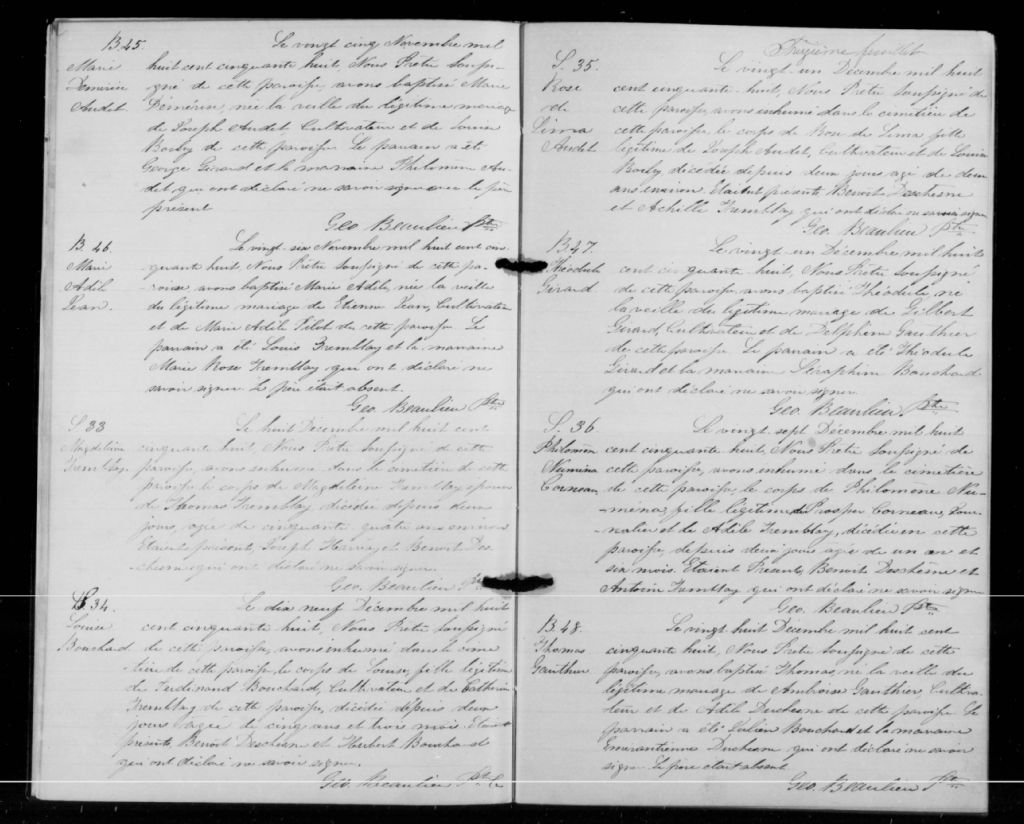 B.45.
Marie
Démérise
Audet
Le vingt cinq Novembre mil
huit cent cinquante huit, Nous Prêtre soussi-
gné de cette paroisse, avons baptisé Marie
Démérise, née la veille du légitime mariage
de Joseph Audet, Cultivateur et de Louise
Boily de cette paroisse. Le parrain a été
George Girard et la marraine Philomène Au-
det qui ont déclaré ne savoir signer le père
présent
Geo. Beaulieu Ptre
B 46.
Marie
Adèl
Jean.
Le vingt-six Novembre mil huit cent cin-
quante huit, Nous Prêtre soussigné de cette pa-
roisse, avons baptisé Marie Adèle, née la veille
du légitime mariage de Etienne Jean, Cultivateur
et de Marie Adèle Pilot de cette paroisse. Le
parrain a été Louis Tremblay et la marraine
Marie Rose Tremblay qui ont déclaré ne
savoir signer. Le père était absent.
Geo. Beaulieu Ptre
S 33
Magdeleine
Tremblay
Le huit Décembre mil huit cent
cinquante huit, Nous Prêtre soussigné de cette
paroisse, avons inhumé dans le cimetière de cette
paroisse le corps de Magdeleine Tremblay épouse
de Thomas Tremblay, décédée depuis deux
jours, agée de cinquante quatre ans environ
Etaient présent, Joseph Harvay et Benoit Des-
chesne qui ont déclaré ne savoir signer.
Geo. Beaulieu Ptre
S 34.
Louise
Bouchard
Le dix neuf Décembre mil huit
cent cinquante huit, Nous Prêtre soussigné
de cette paroisse, avons inhumé dans le cime-
tière de cette paroisse, le corps de Louise, fille légitime
de Ferdinand Bouchard, Cultivateur et de Catherine
Tremblay de cette paroisse, décédée depuis deux
jours agée de cinq ans et trois mois. Etaient
présents, Benoit Deschesne et Herbert Bouchard
qui ont déclaré ne savoir signer.
Geo. Beaulieu Ptre
feuillet
S. 35.
Rose
de
Lima
Audet
Le vingt-un Décembre mil huit
cent cinquante-huit, Nous Prêtre soussigné de
cette paroisse, avons inhumé dans le cimetière de
cette paroisse, le corps de Rose de Lima fille
légitime de Joseph Audet, Cultivateur et de Louise
Boily, décédée depuis deux jours agé de deux
ans environ. Etaient présents, Benoit Deschesne
et Achille Tremblay qui ont déclaré ne savoir signer
Geo. Beaulieu Ptre
B.47.
Théodule
Girard
Le vingt un Décembre mil huit
cent cinquante huit, Nous Prêtre soussigné
de cette paroisse, avons baptisé Théodule né
la veille du légitime mariage de Gilbert
Girard, Cultivateur et de Delphine Gauthier
de cette paroisse. Le parrain a été Théodule
Girard et la marraine Séraphine Bouchard
qui ont déclaré ne savoir signer.
Geo. Beaulieu Ptre
S. 36.
Philomène
Numina
Corneau
Le vingt sept Décembre mil huit
cent cinquante huit, Nous Prêtre soussigné de
cette paroisse, avons inhumé dans le cimetière
de cette paroisse, le corps de Philomène Nu-
-mena, fille légitime de Prosper Corneau, Jour-
nalier et de Adèle Tremblay, décédée en cette
paroisse, depuis deux jours agée de un an et
six mois. Etaient Présents, Benoit Deschêsne et
Antoine Tremblay qui ont déclaré ne savoir signer
Geo. Beaulieu Ptre
B.48.
Thomas
Gauthier
Le vingt huit Décembre mil huit cent
cinquante huit, Nous Prêtre soussigné de cette
paroisse, avons baptisé Thomas, né la veille du
légitime mariage de Ambroise Gauthier, Cultiva-
teur et de Adèle Duchesne de cette paroisse. Le
parrain a été Julien Bouchard et la marraine
Emérantienne Duchesne qui ont déclaré ne savoir
signer. Le père était absent.
Geo. Beaulieu Ptre